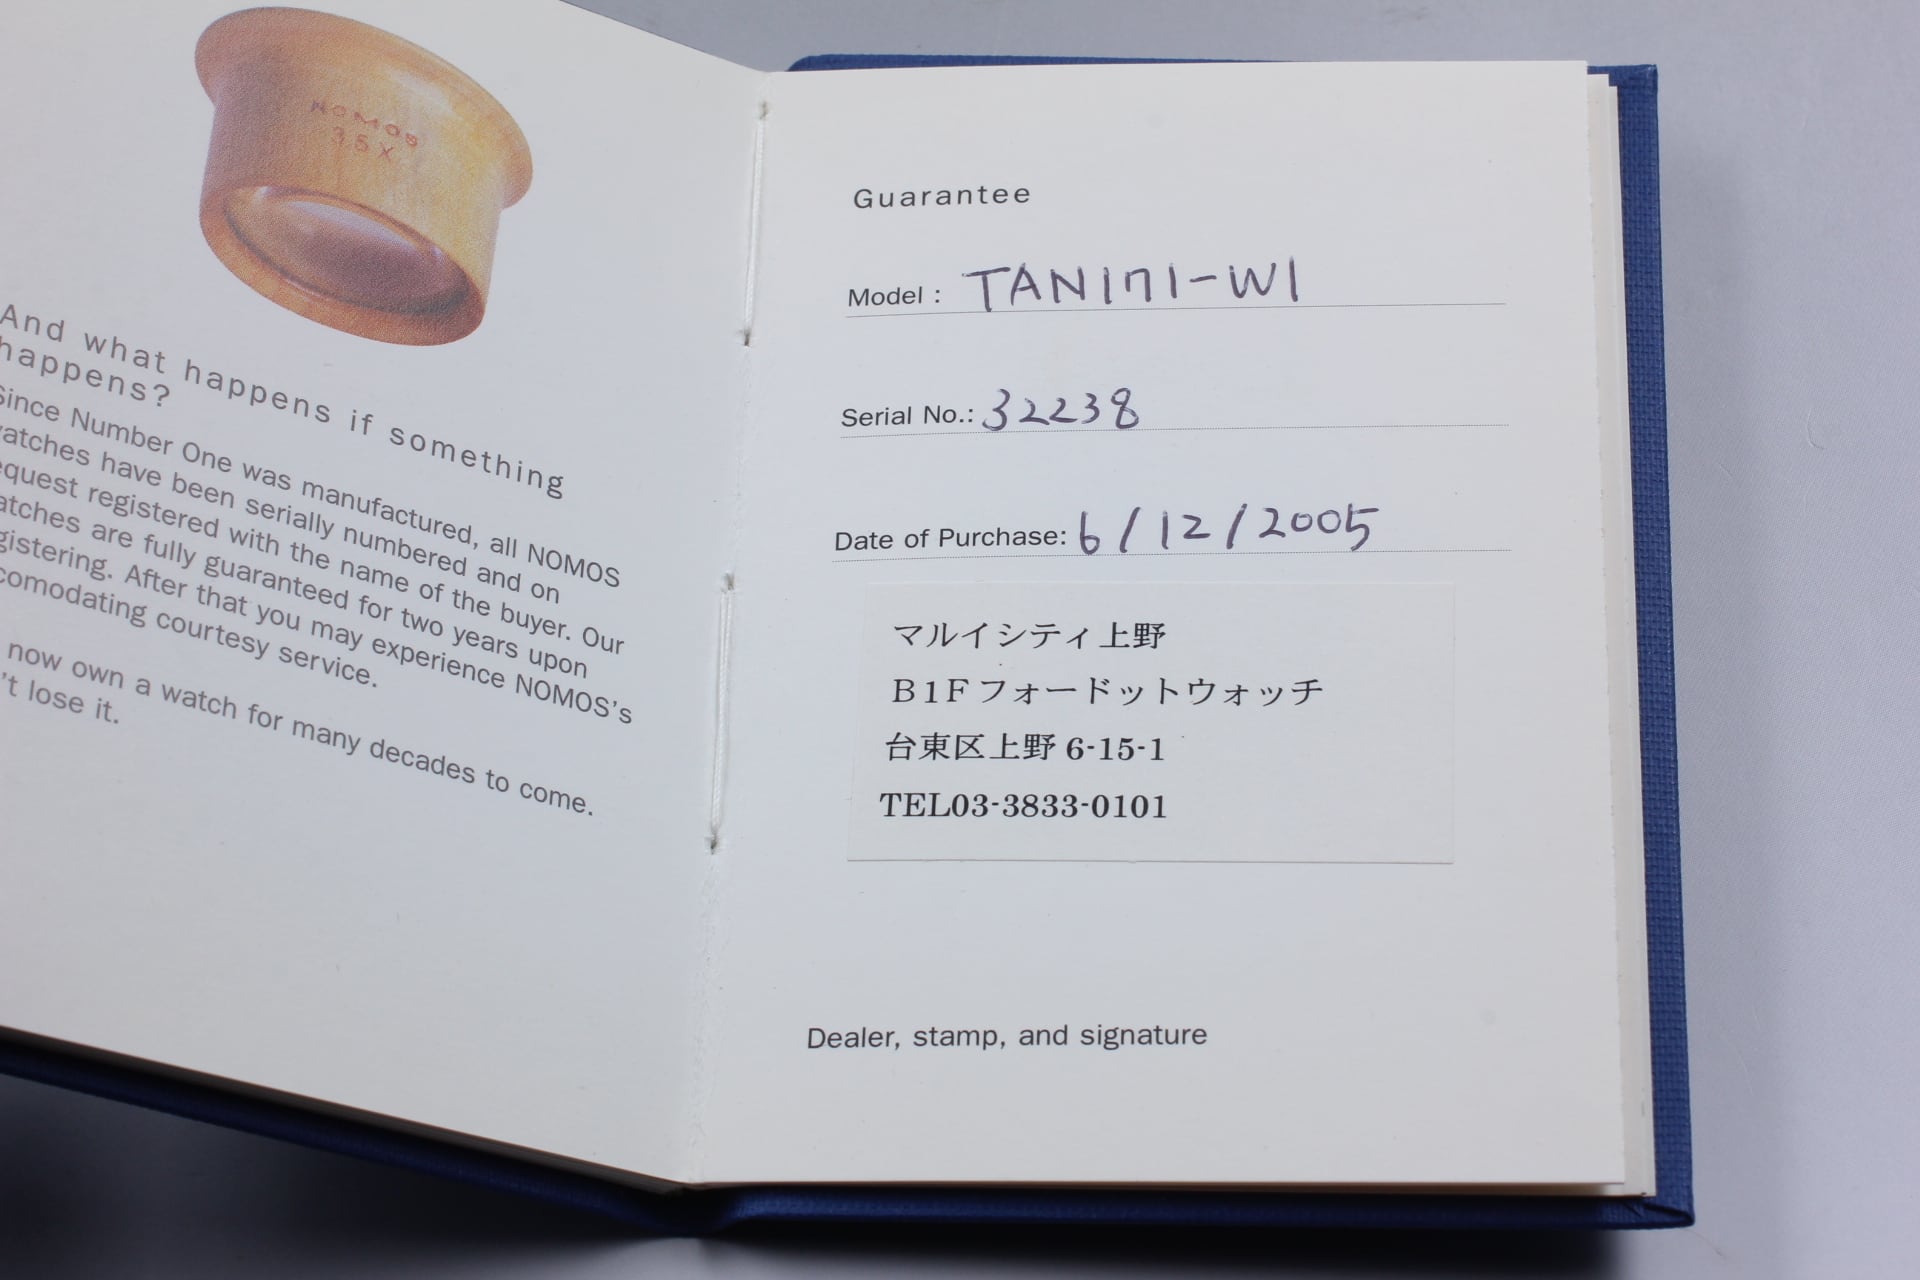 NOMOS
3 5 X
And what happens if something
happens?
Since Number One was manufactured, all NOMOS
watches have been serially numbered and on
request registered with the name of the buyer. Our
watches are fully guaranteed for two years upon
registering. After that you may experience NOMOS's
comodating courtesy service.
now own a watch for many decades to come.
't lose it.
Guarantee
Model : TAN171-W1
Serial No.: 32238
Date of Purchase: 6/12/2005
マルイシティ上野
B1Fフォードットウォッチ
台東区上野 6-15-1
TEL03-3833-0101
Dealer, stamp, and signature